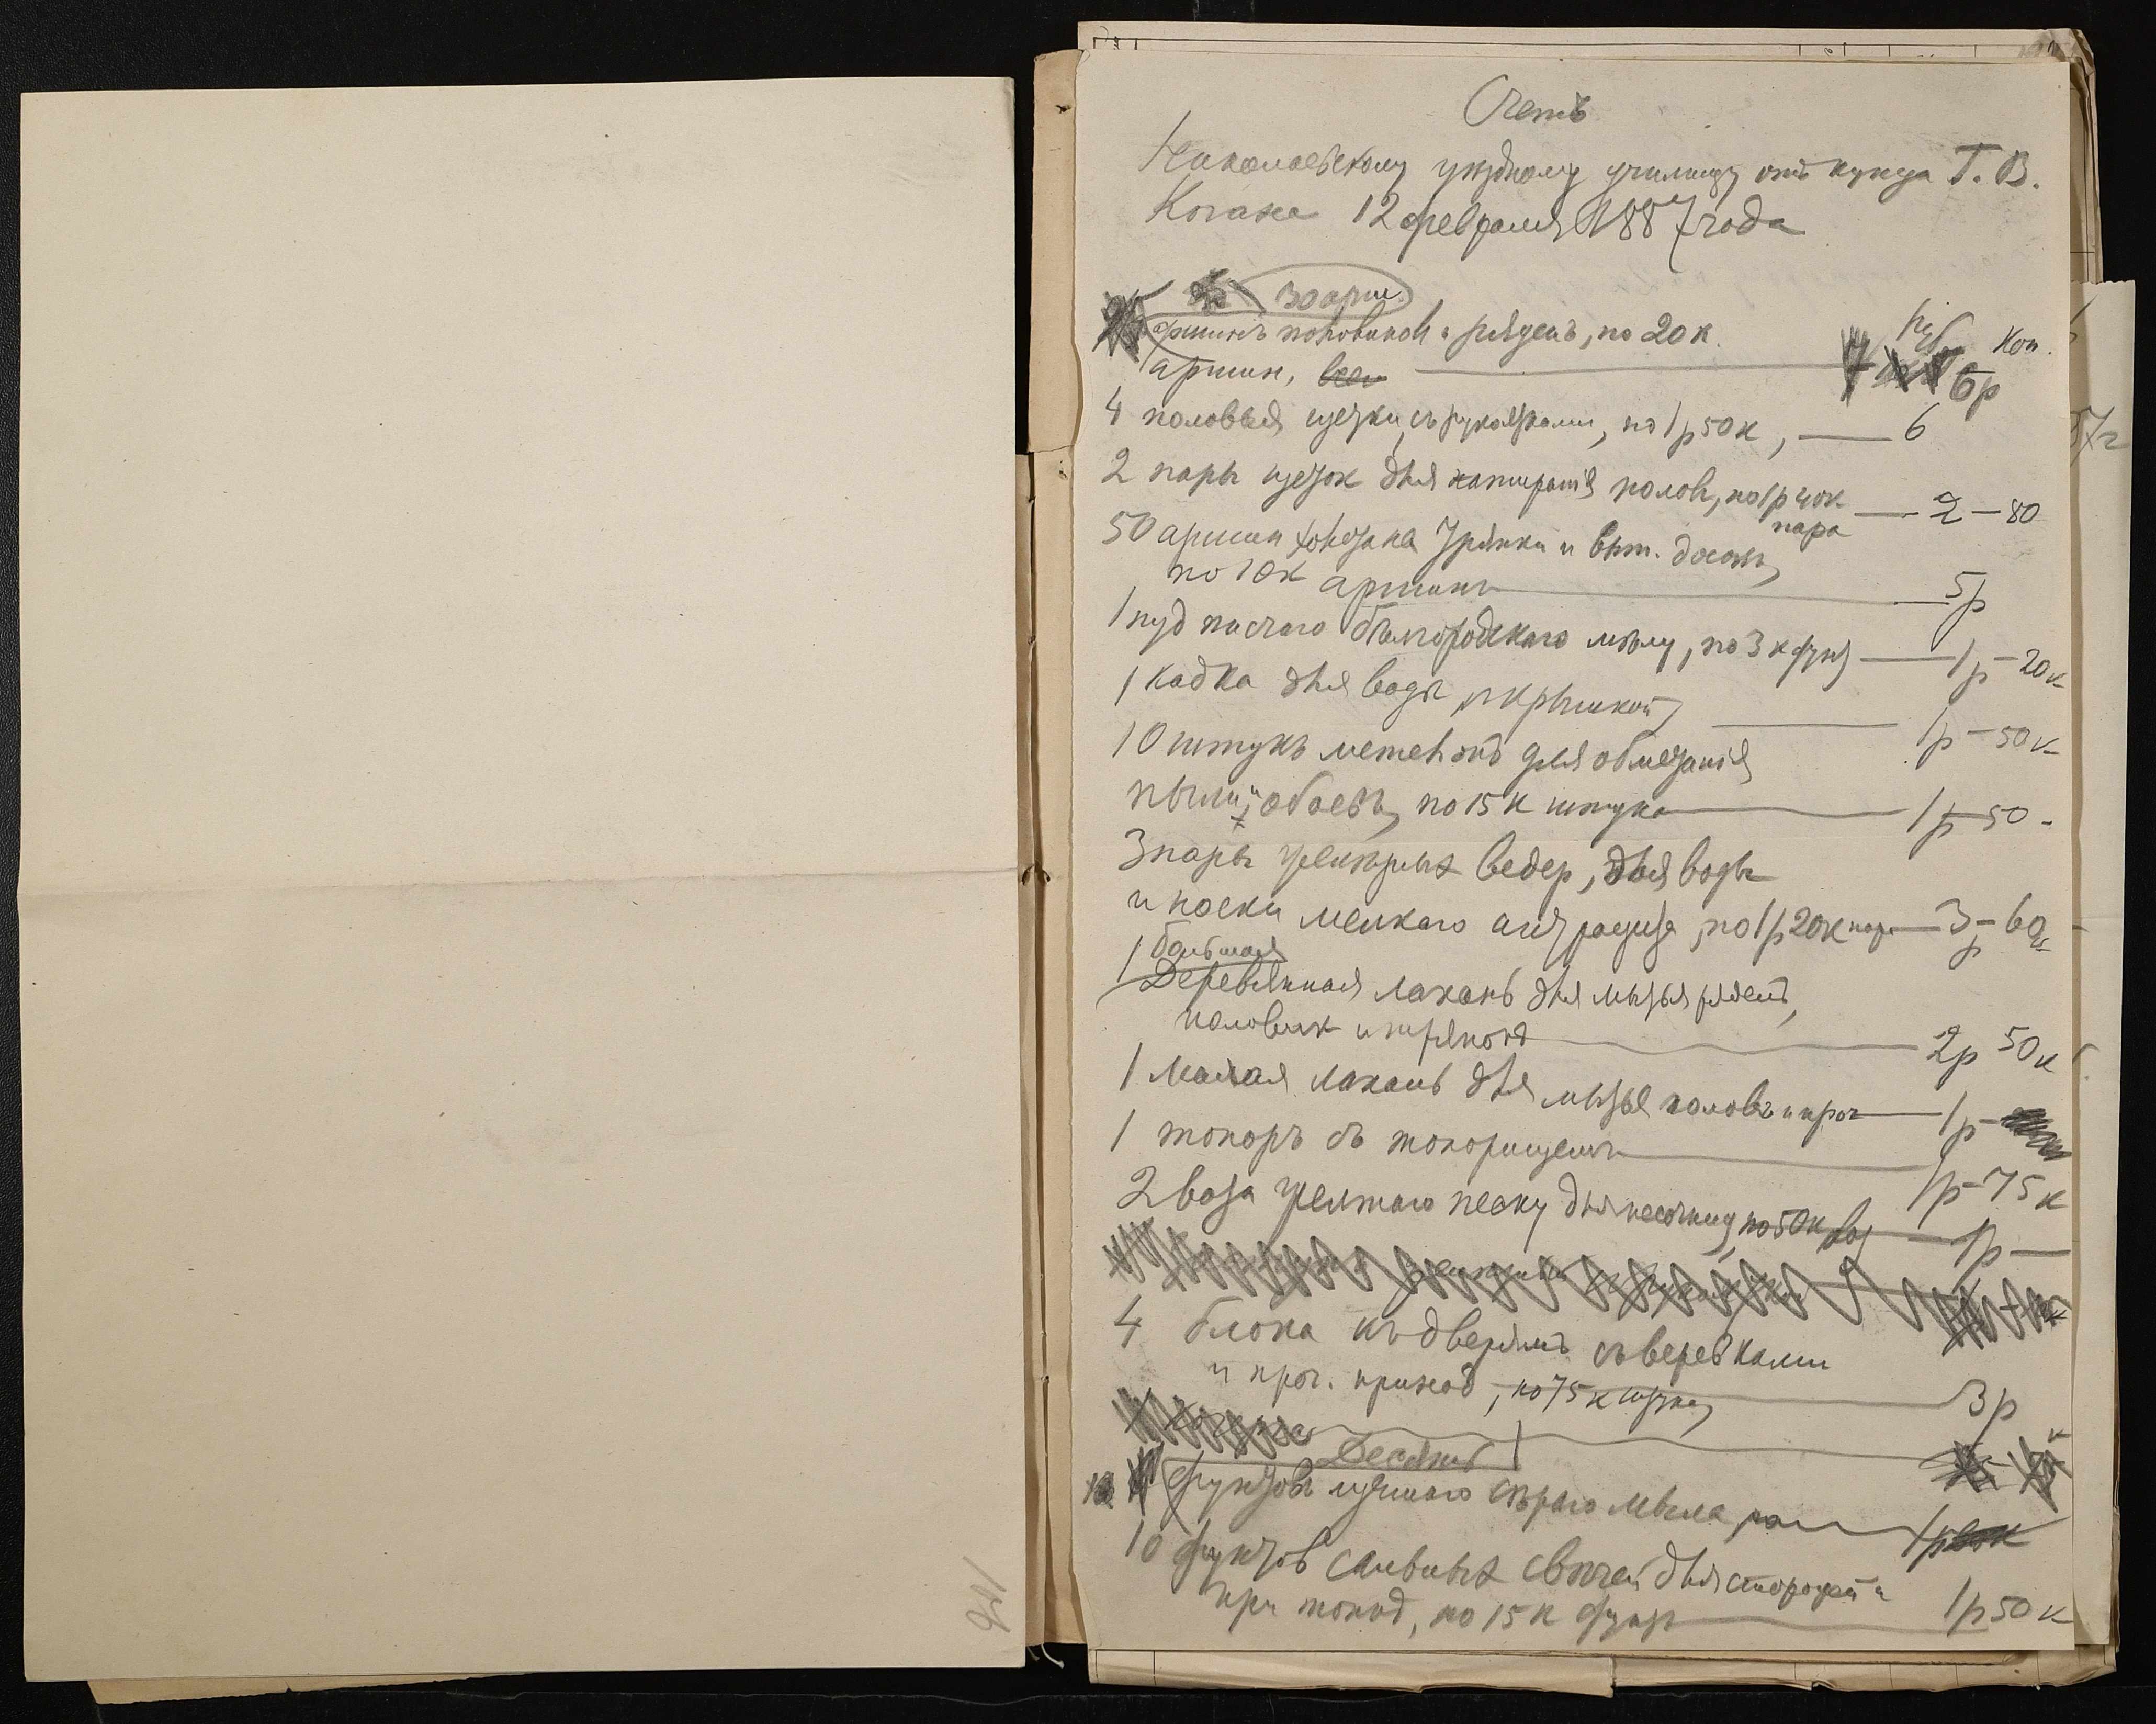 Счетъ
Николаевскому уѣздному училищу отъ купца Г. В.
Когана 12 февраля 1887 года
30 арш.
аршинъ половиков и ряденъ, по 20 к.
руб. Коп.
аршин, всего 6 р
4 половыя щетки, съ рукоятками, по 1 р 50 к, — 6
2 пары щеток для натирания полов, по 1 р 40 к — 2 — 80
пара
50 аршин холста на тряпки и выт. досокъ,
по 10 к аршинъ — 5 р
1 пуд писчаго бѣлгородскаго мѣлу, по 3 к фунт — 1 р — 20 к
1 кадка для воды с крышкой, — 1 р — 50 к
10 штукъ метелокъ для обметанія
пыли и обоевъ, по 15 к штука — 1 р — 50 -
3 пары желѣзных ведер, для воды
и носки мелкаго антрацита, по 1 р 20 к пара — 3 р — 60 к
1 большая
Деревянная лахань для мытья ряденъ,
половик и тряпокъ — 2 р 50 к
1 Малая лахань для мытья половъ и проч — 1 р —
1 топоръ съ топорищемъ — 1 р — 75 к
2 воза желтаго песку для песочниц, по 50 к воз — 1 р —
4 блока къ дверямъ съ веревками
и проч. принад, по 75 к штука, — 3 р
Десять
фунтовъ сѣраго мыла — 1 р
10 фунтов сальных свѣчей для сторожей и
при топкѣ, по 15 к фунт — 1 р 50 к